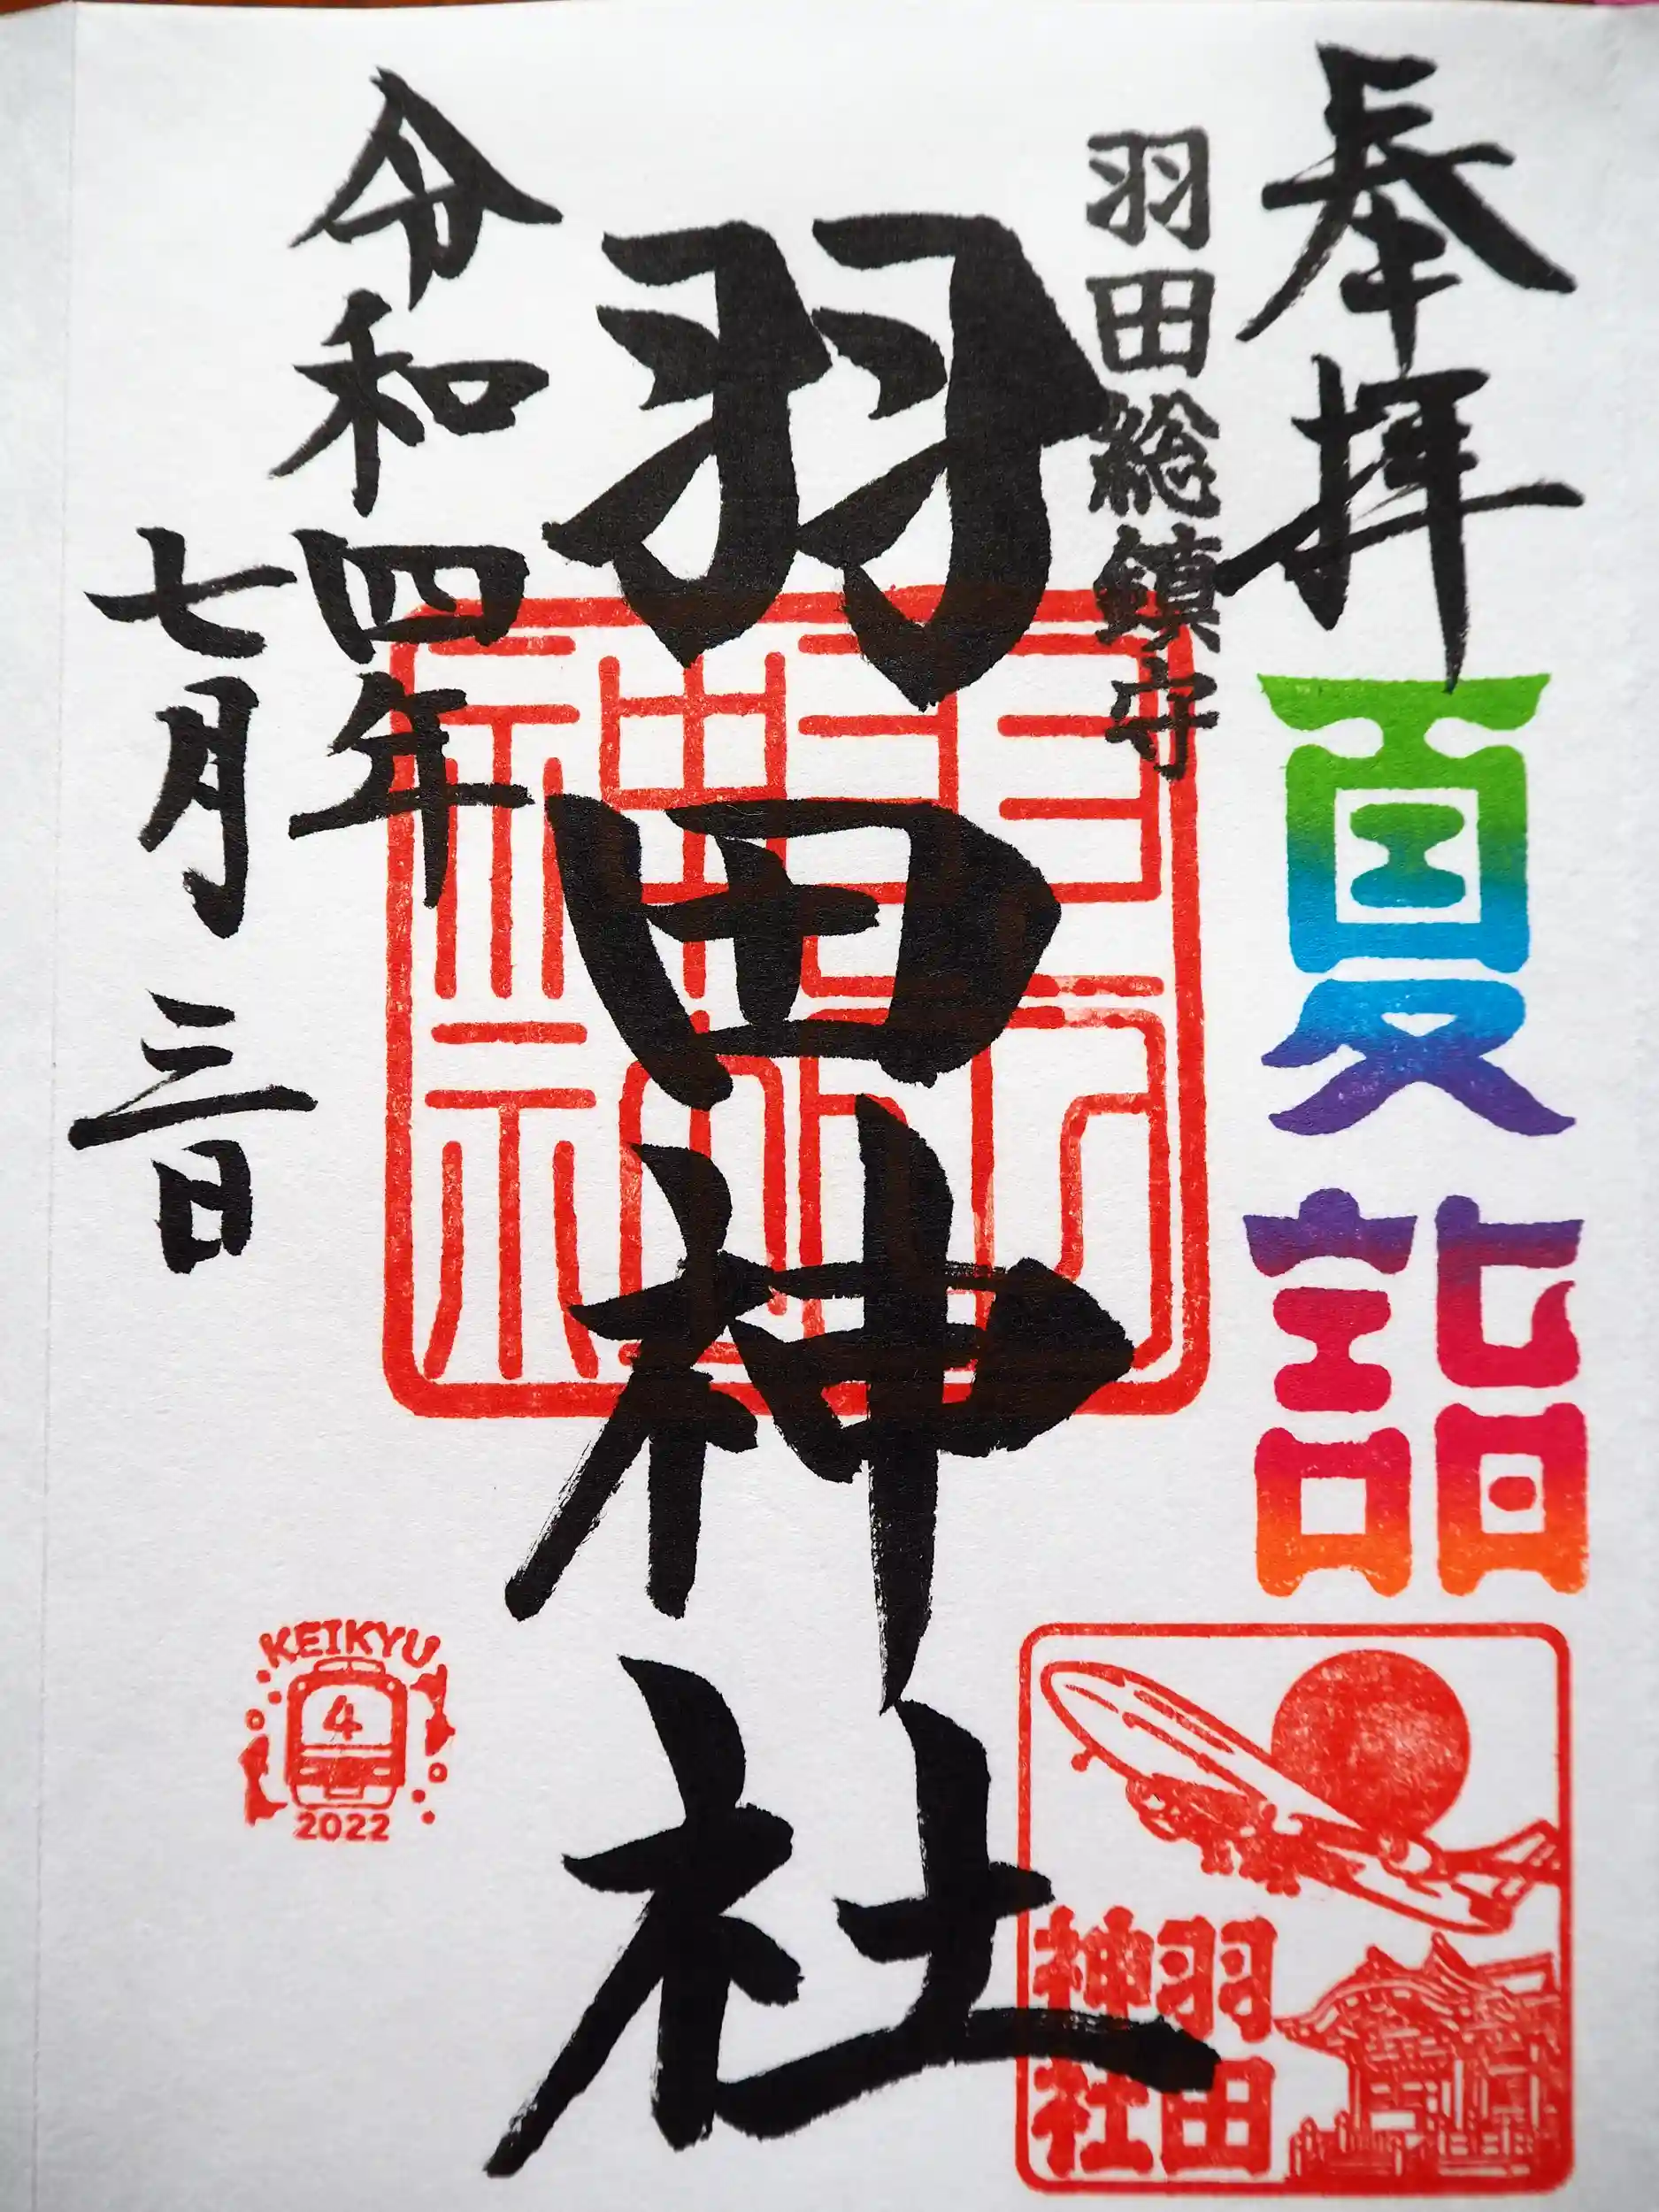 奉拝
夏詣
羽田総鎮守
羽田神社
令和四年
七月三日
羽田
神社
KEIKYU
4
2022